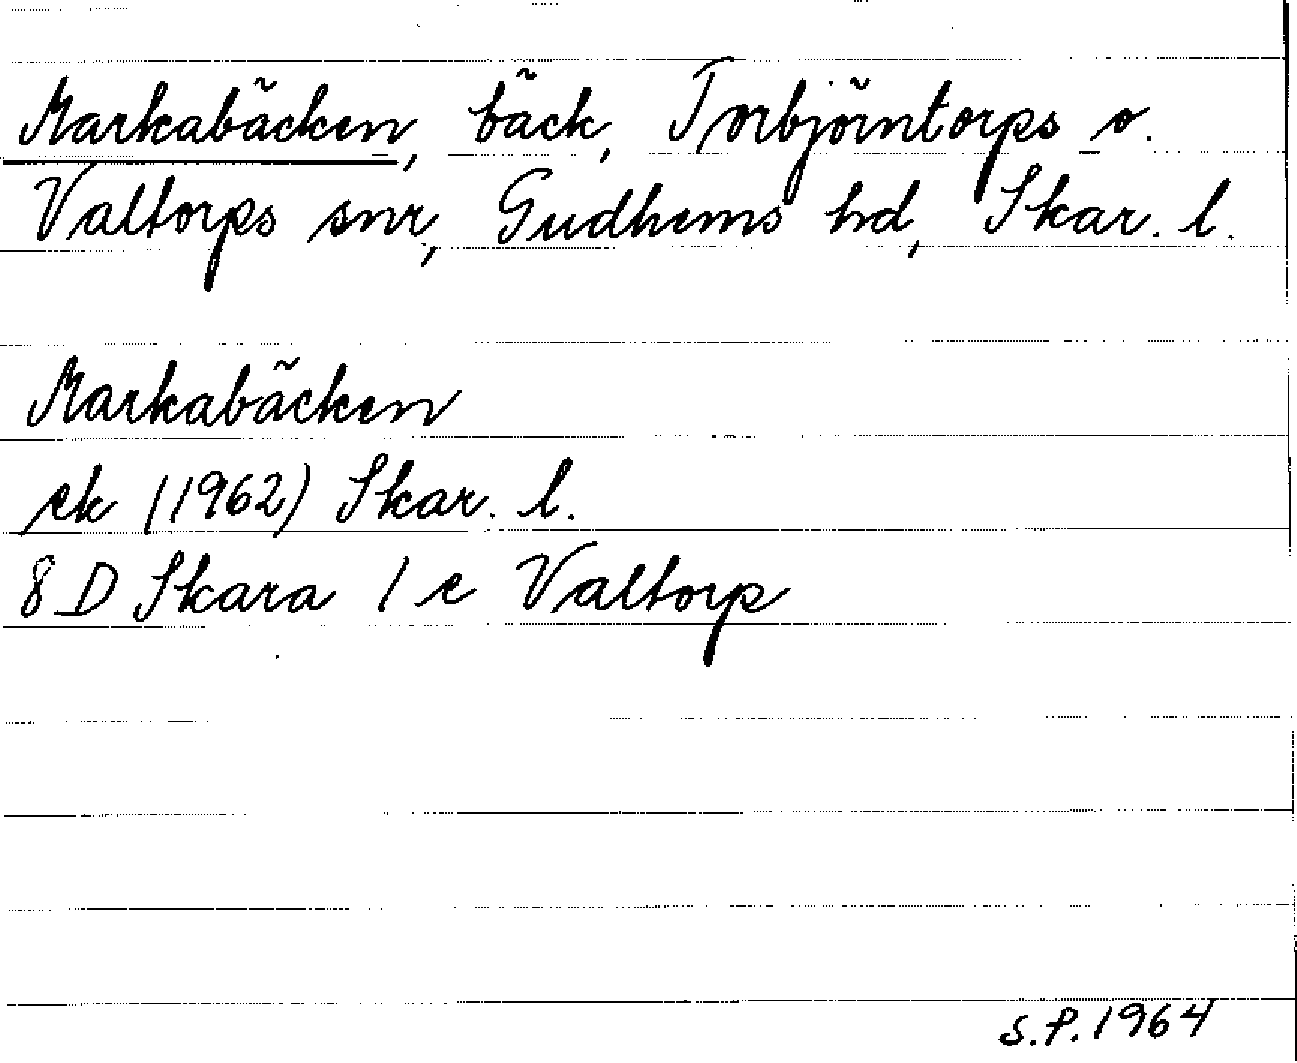 Markabäcken, bäck, Torbjörntorps o.
Valtorps snr, Gudhems hd, Skar. l.
Markabäcken
ek (1962) Skar. l.
8 D Skara 1 e Valtorp
S.P. 1964